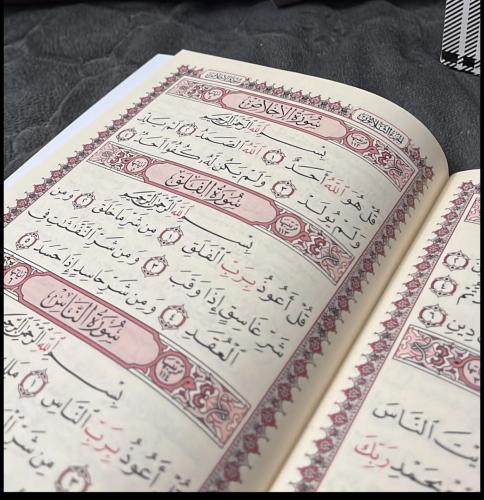 سُورَةُ الإِخْلَاصِ
بِسْمِ اللَّهِ الرَّحْمَٰنِ الرَّحِيمِ
قُلْ هُوَ اللَّهُ أَحَدٌ ١ اللَّهُ الصَّمَدُ ٢ لَمْ يَلِدْ
وَلَمْ يُولَدْ ٣ وَلَمْ يَكُن لَّهُ كُفُوًا أَحَدٌ ٤
سُورَةُ الْفَلَقِ
بِسْمِ اللَّهِ الرَّحْمَٰنِ الرَّحِيمِ
قُلْ أَعُوذُ بِرَبِّ الْفَلَقِ ١ مِن شَرِّ مَا خَلَقَ ٢ وَمِن
شَرِّ غَاسِقٍ إِذَا وَقَبَ ٣ وَمِن شَرِّ النَّفَّاثَاتِ فِي
الْعُقَدِ ٤ وَمِن شَرِّ حَاسِدٍ إِذَا حَسَدَ ٥
سُورَةُ النَّاسِ
بِسْمِ اللَّهِ الرَّحْمَٰنِ الرَّحِيمِ
قُلْ أَعُوذُ بِرَبِّ النَّاسِ ١
مِن شَرِّ
دِينِ
يْتَ النَّاسَ
بِحَمْدِ رَبِّكَ